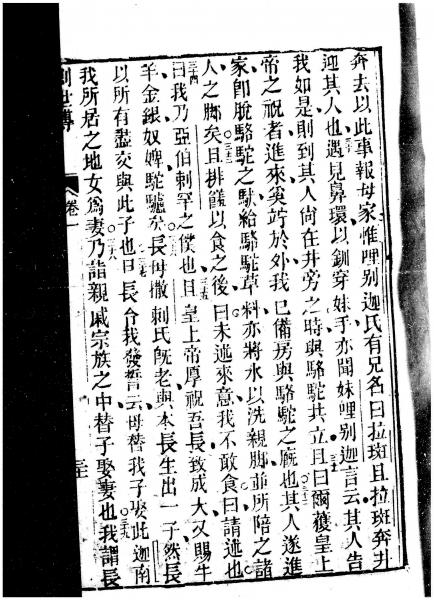 奔去以此事報母家惟哩別迦氏有兄名曰拉班且拉班奔井
迎其人也遇見鼻環以釧穿妹手亦聞妹哩別迦言云其人告
我如是則到其人尚在井旁之時與駱駝共立且曰爾獲皇上
帝之祝者進來奚竚於外我已備房與駱駝之廐也其人遂進
家卽脫駱駝之馱給駱駝草料亦將水以洗親脚並所陪之諸
人之脚矣且排饍以食之後曰未述來意我不敢食曰請述也
曰我乃亞伯剌罕之僕也且皇上帝厚祝吾長致成大又賜牛
羊金銀奴婢駝驢矣長母撒剌氏旣老與本長生出一子然長
以所有盡交與此子也曰長令我發誓云毋替我子娶此迦南
我所居之地女爲妻乃詣親戚宗族之中替子娶妻也我謂長
創世傳 卷一